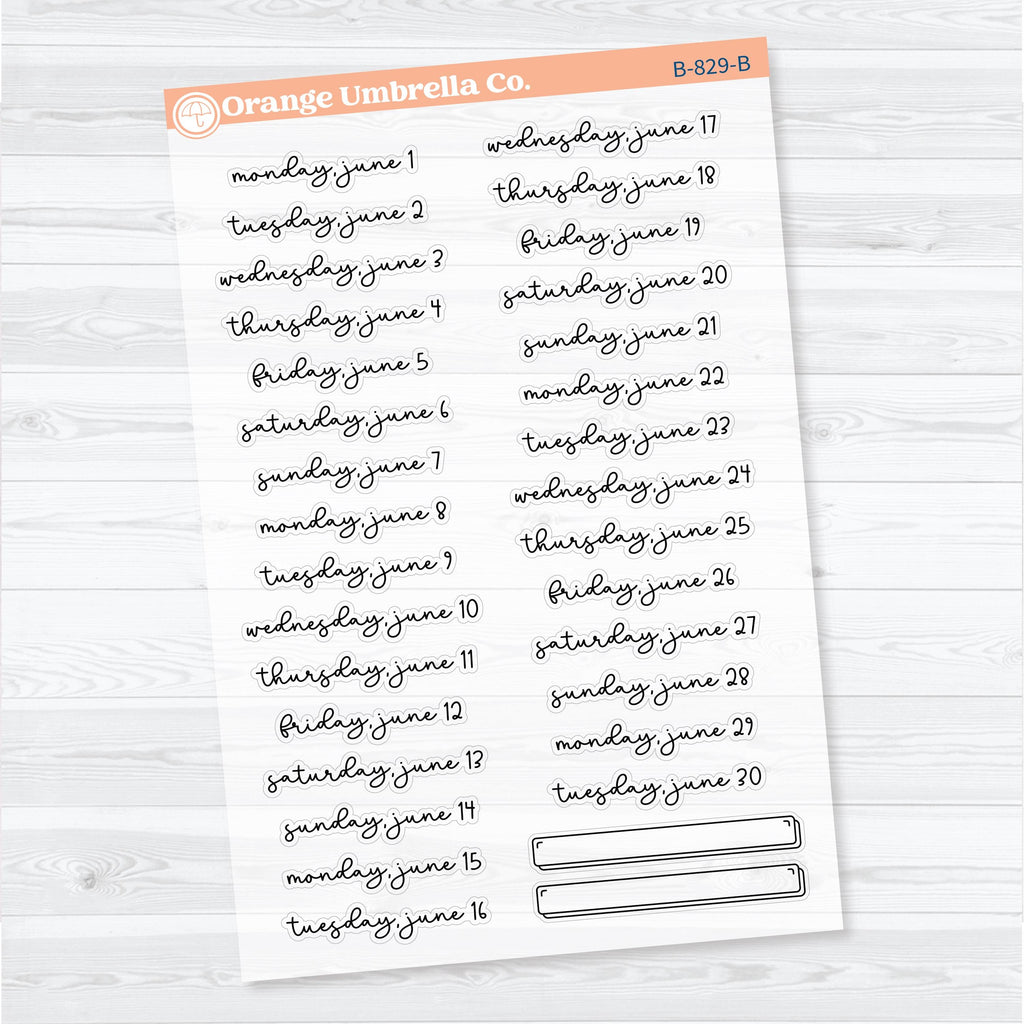 Orange Umbrella Co.
B-829-B
monday, june 1
tuesday, june 2
wednesday, june 3
thursday, june 4
friday, june 5
saturday, june 6
sunday, june 7
monday, june 8
tuesday, june 9
wednesday, june 10
thursday, june 11
friday, june 12
saturday, june 13
sunday, june 14
monday, june 15
tuesday, june 16
wednesday, june 17
thursday, june 18
friday, june 19
saturday, june 20
sunday, june 21
monday, june 22
tuesday, june 23
wednesday, june 24
thursday, june 25
friday, june 26
saturday, june 27
sunday, june 28
monday, june 29
tuesday, june 30